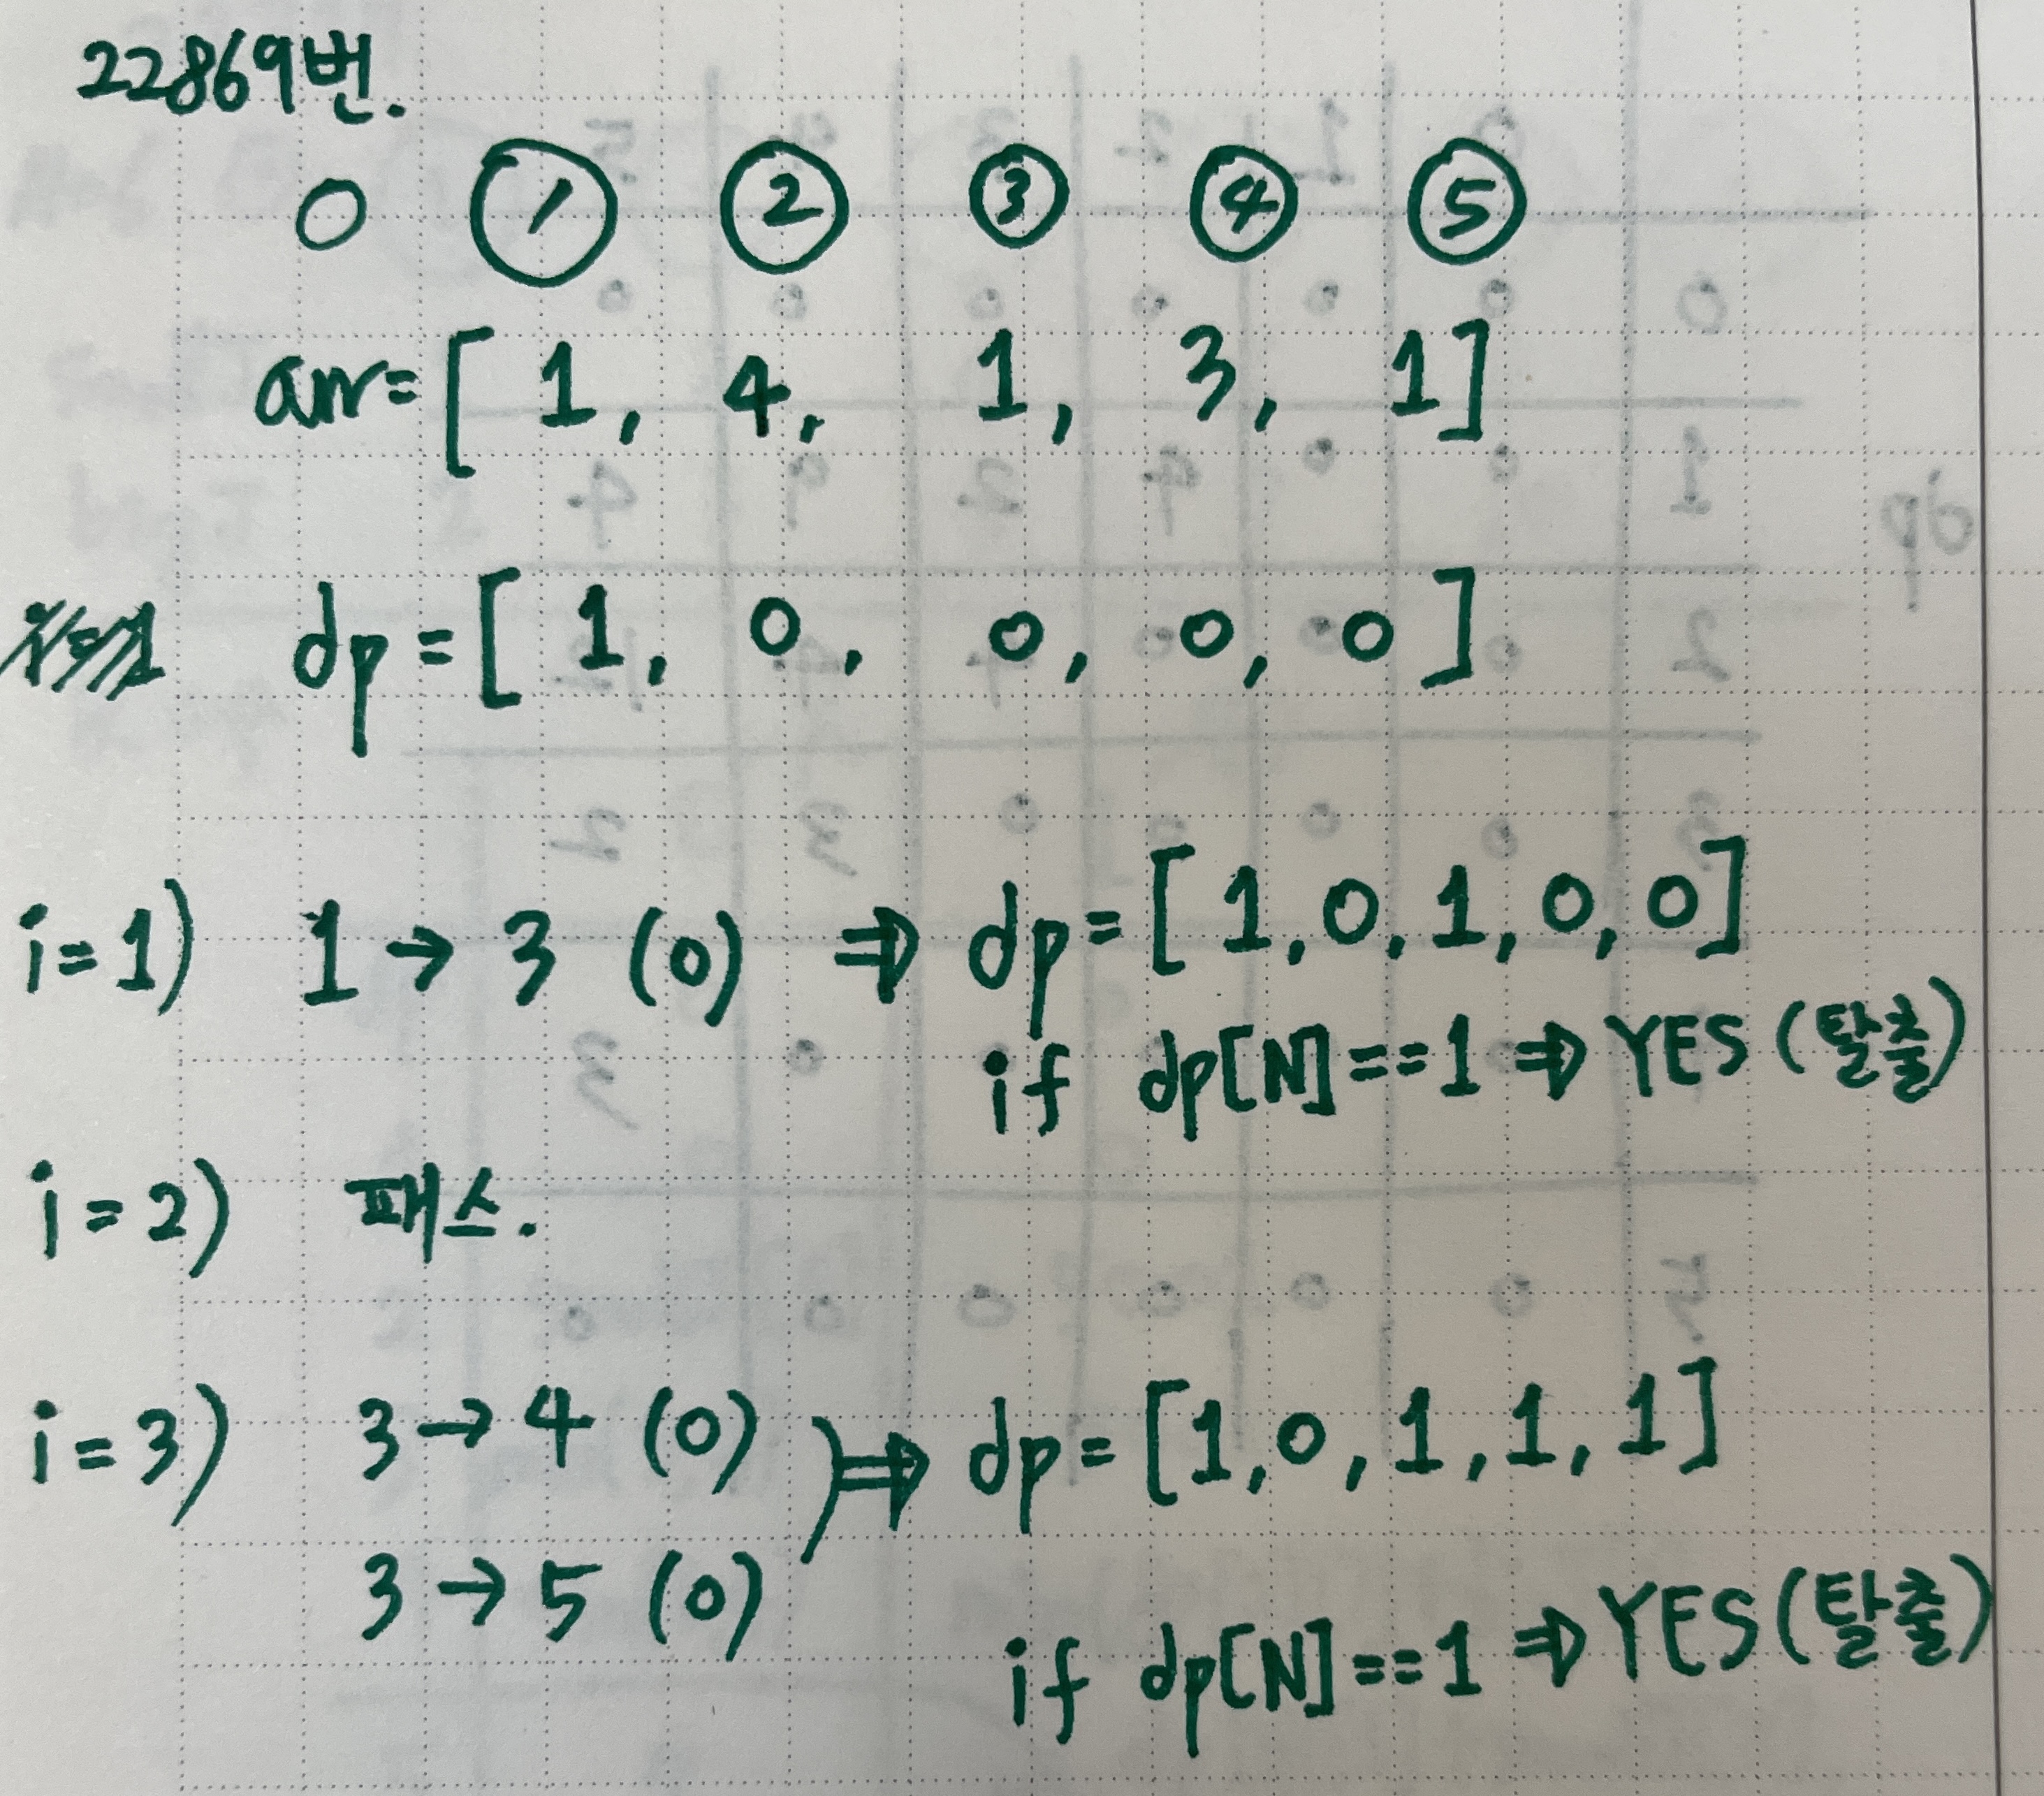 22869번.
0 ① ② ③ ④ ⑤
arr=[1, 4, 1, 3, 1]
dp=[1, 0, 0, 0, 0]
i=1) 1→3 (0) ⇒ dp=[1,0,1,0,0]
if dp[N]==1 ⇒ YES (탈출)
i=2) 패스.
i=3) 3→4 (0) ⇒ dp=[1,0,1,1,1]
3→5 (0)
if dp[N]==1 ⇒ YES (탈출)